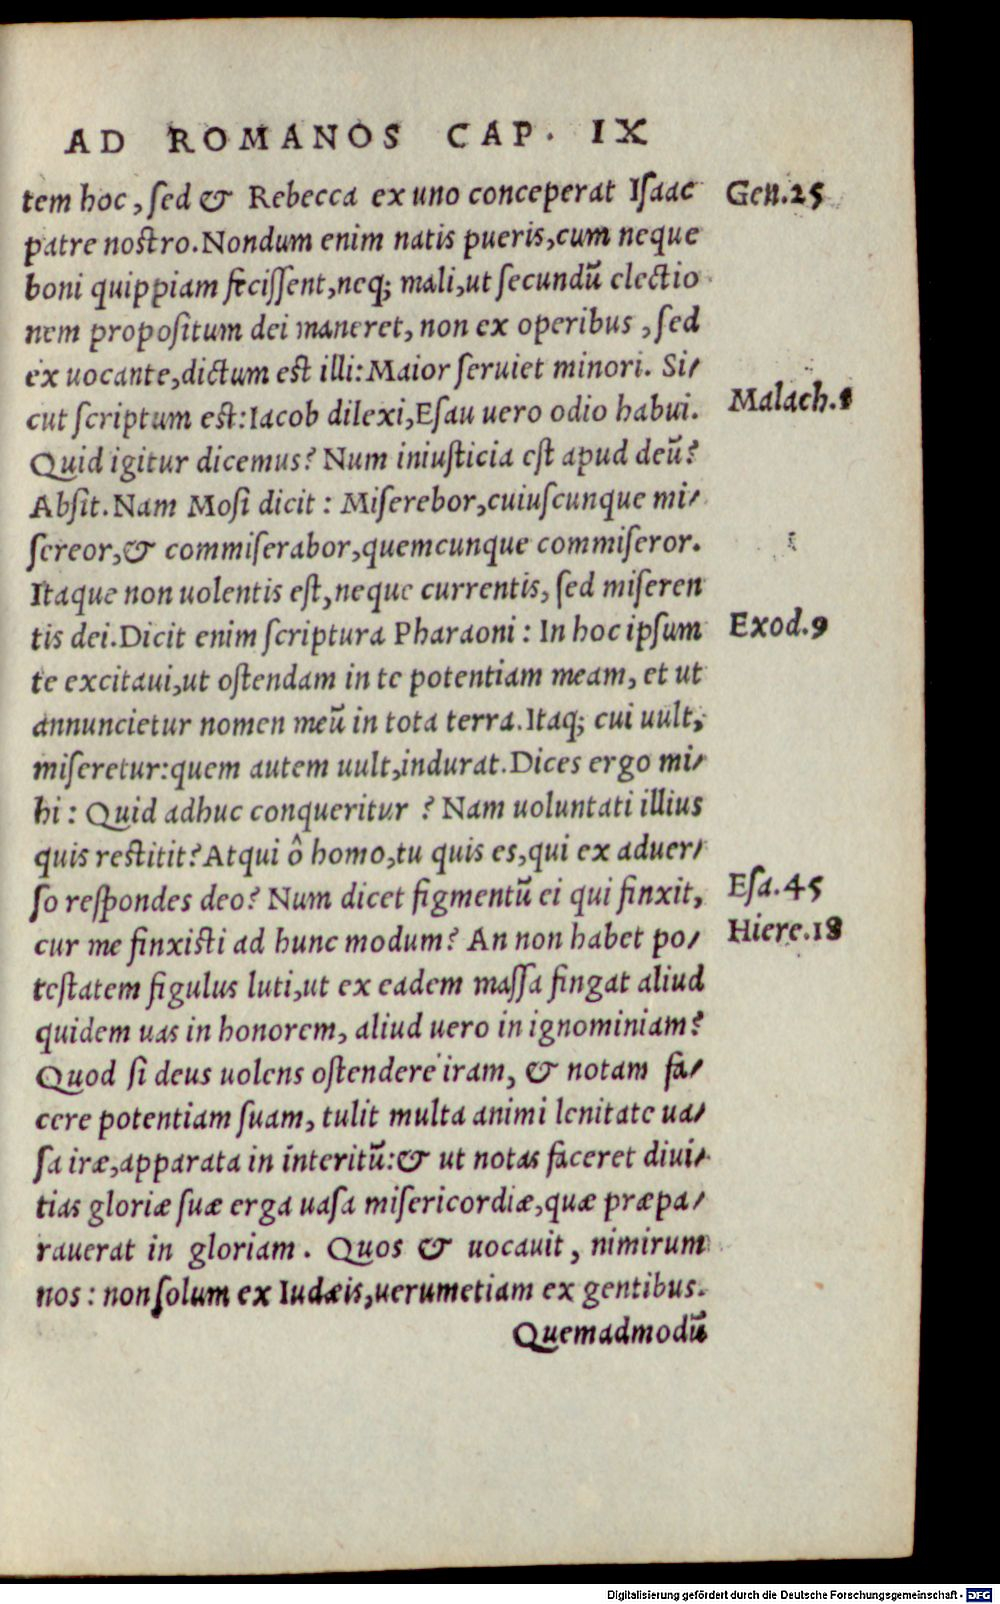 AD ROMANOS CAP. IX
tem hoc, ſed & Rebecca ex uno conceperat Iſaac
Gen.25
patre noſtro. Nondum enim natis pueris, cum neque
boni quippiam feciſſent, neq; mali, ut ſecundū electio
nem propoſitum dei maneret, non ex operibus, ſed
ex uocante, dictum eſt illi: Maior ſeruiet minori. Si/
cut ſcriptum eſt: Iacob dilexi, Eſau uero odio habui.
Malach.1
Quid igitur dicemus? Num iniuſticia eſt apud deū?
Abſit. Nam Moſi dicit: Miſerebor, cuiuſcunque mi/
ſereor, & commiſerabor, quemcunque commiſeror.
Itaque non uolentis eſt, neque currentis, ſed miſeren
tis dei. Dicit enim ſcriptura Pharaoni: In hoc ipſum
Exod.9
te excitaui, ut oſtendam in te potentiam meam, et ut
annuncietur nomen meū in tota terra. Itaq; cui uult,
miſeretur: quem autem uult, indurat. Dices ergo mi/
hi: Quid adhuc conqueritur? Nam uoluntati illius
quis reſtitit? Atqui ô homo, tu quis es, qui ex aduer/
ſo reſpondes deo? Num dicet figmentū ei qui finxit,
Eſa.45
cur me finxiſti ad hunc modum? An non habet po/
Hiere.18
teſtatem figulus luti, ut ex eadem maſſa fingat aliud
quidem uas in honorem, aliud uero in ignominiam?
Quod ſi deus uolens oſtendere iram, & notam fa/
cere potentiam ſuam, tulit multa animi lenitate ua/
ſa iræ, apparata in interitū: & ut notas faceret diui/
tias gloriæ ſuæ erga uaſa miſericordiæ, quæ præpa/
rauerat in gloriam. Quos & uocauit, nimirum
nos: non ſolum ex Iudæis, uerumetiam ex gentibus.
Quemadmodū
Digitalisierung gefördert durch die Deutsche Forschungsgemeinschaft - DFG